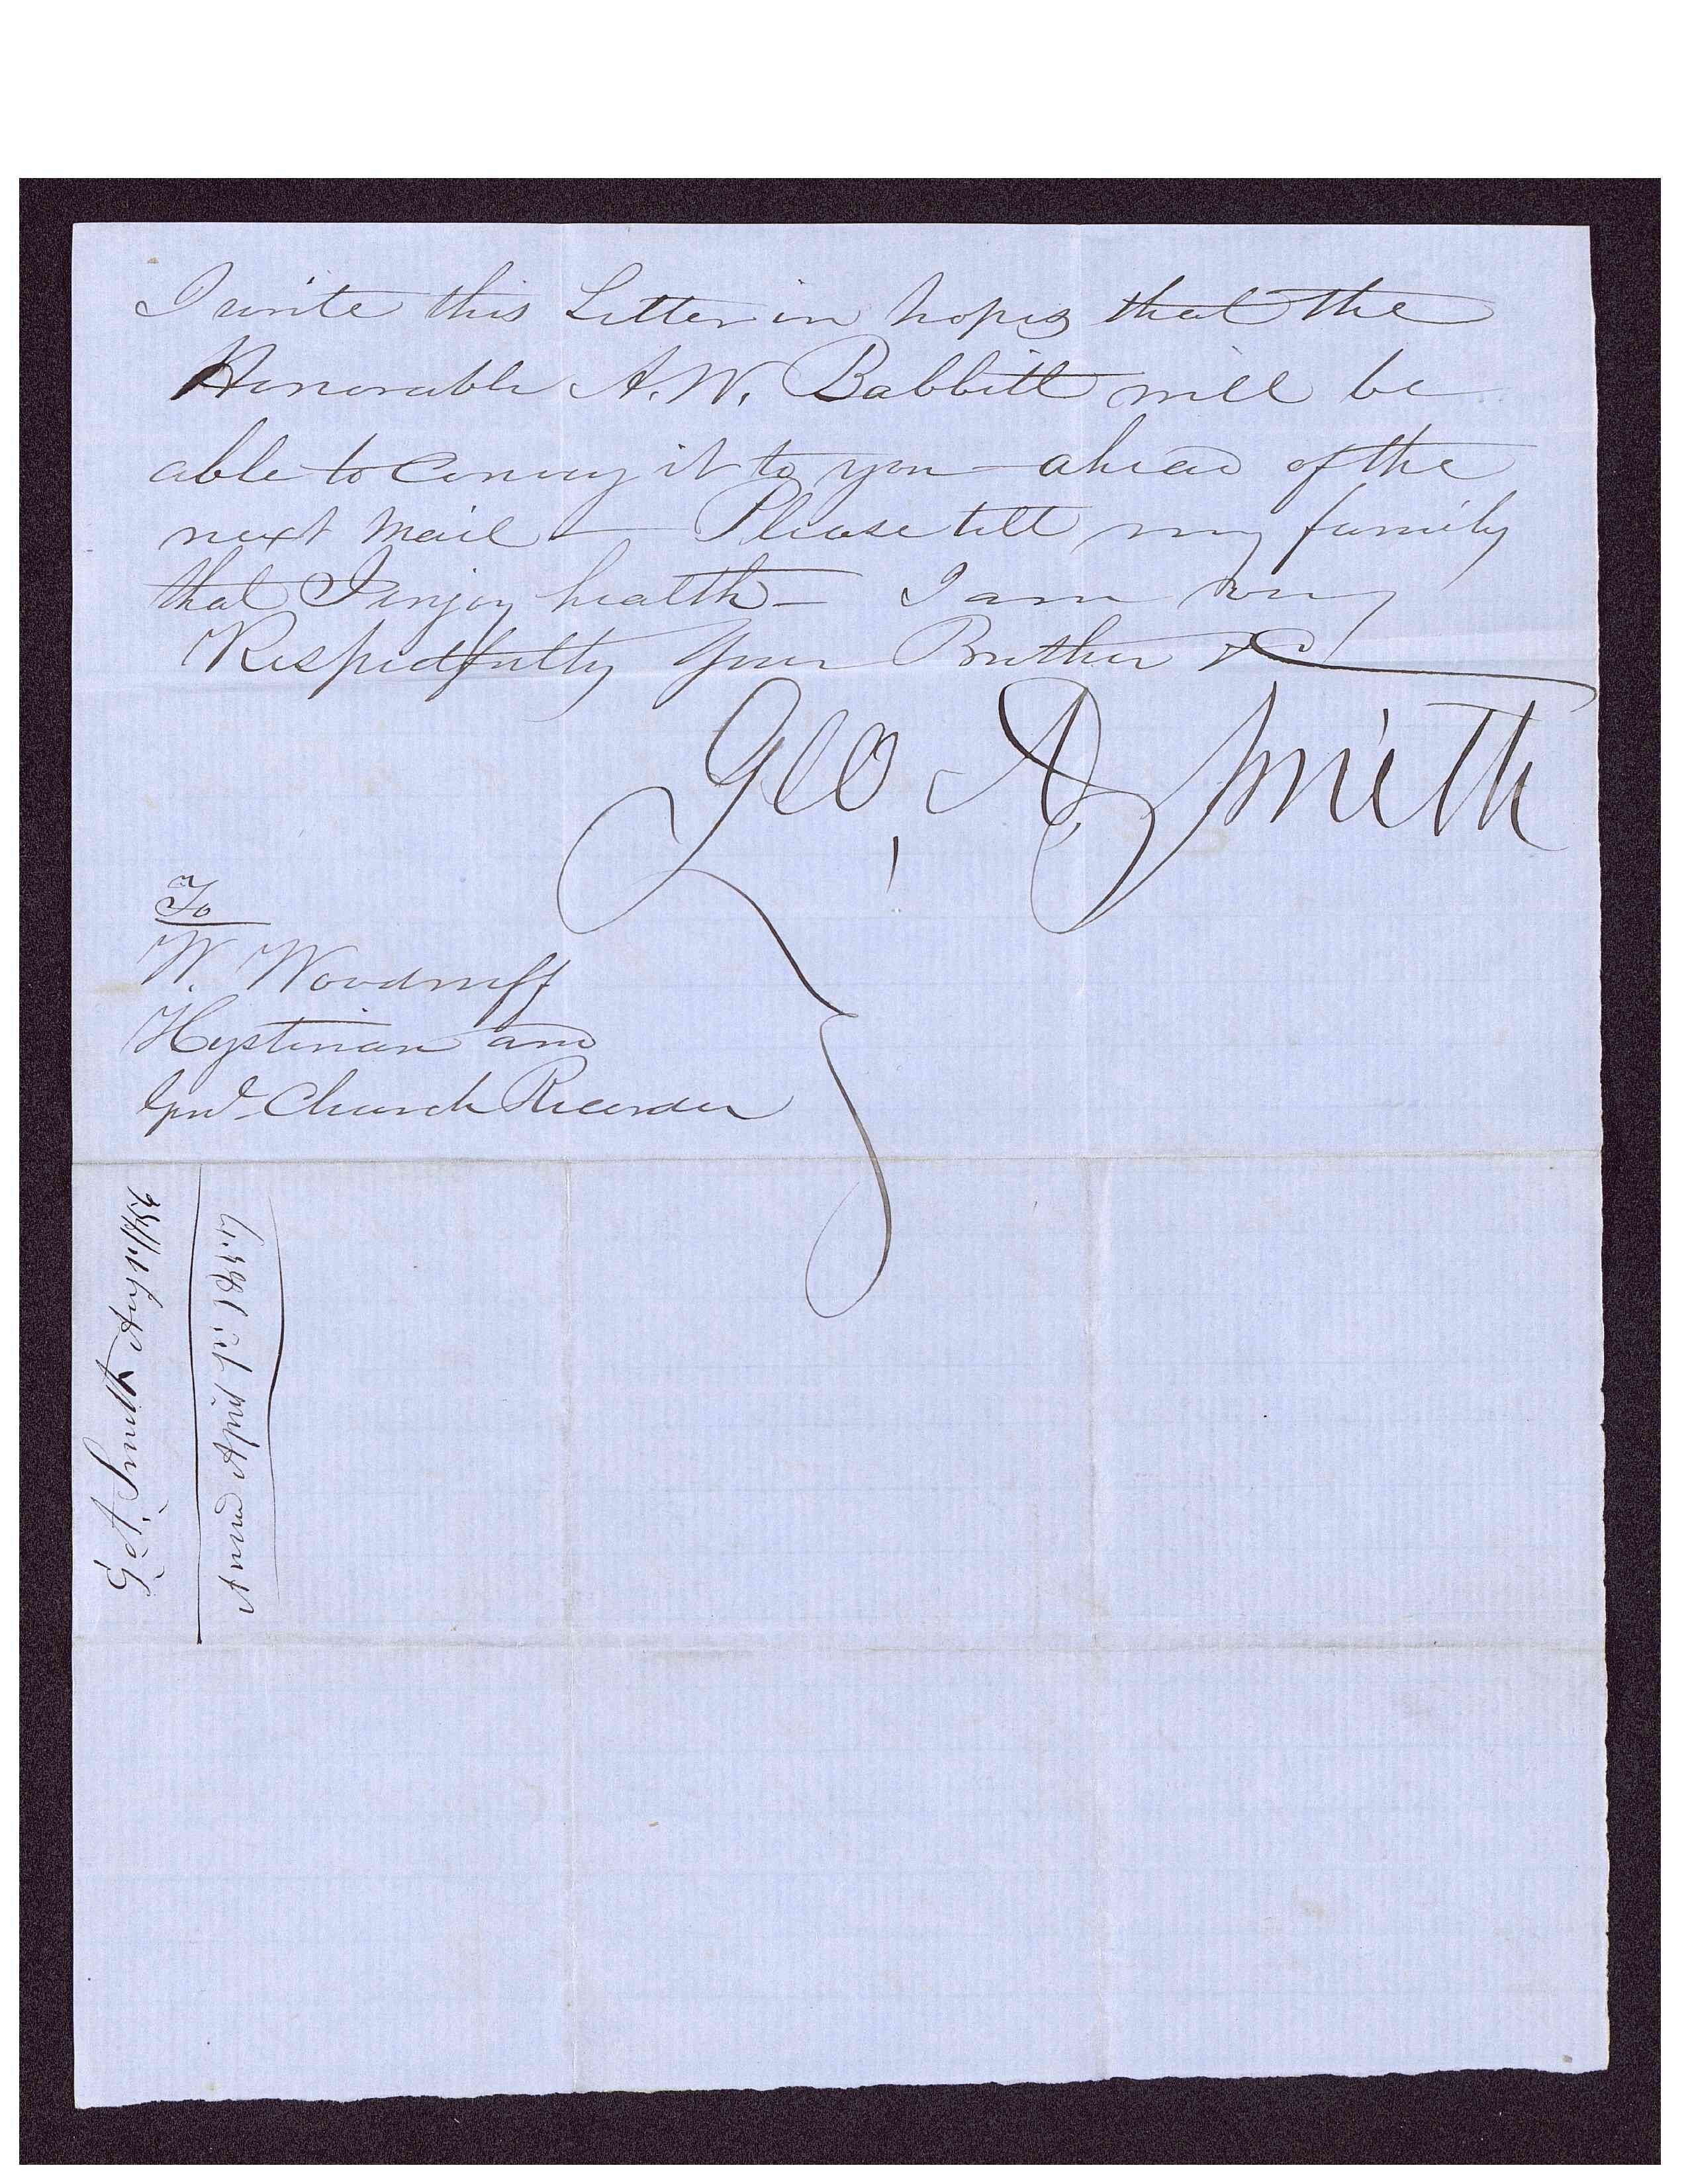 I write this Letter in hopes that the
Honorable A. W. Babbitt will be
able to convey it to you – ahead of the
next mail – Please tell my family
that I injoy health – I am very
Respectfully your Brother &c
Geo, A Smith
To
W. Woodruff
Hystorian and
Genl Church Recorder
G. A. Smith Aug 12/56
April 12. 1857